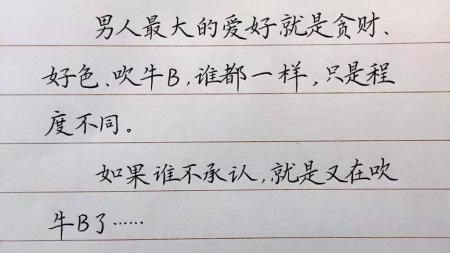 男人最大的爱好,就是贪财、
好色、吹牛B,谁都一样,只是程
度不同。
如果谁不承认,就是又在吹
牛B了……